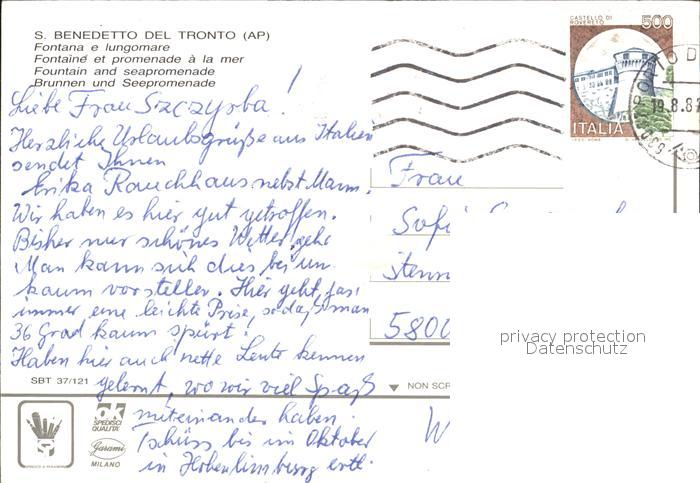 S. BENEDETTO DEL TRONTO (AP)
Fontana e lungomare
Fontaine et promenade à la mer
Fountain and seapromenade
Brunnen und Seepromenade
Liebe Frau Szczyrba!
Herzliche Urlaubsgrüße aus Italien
sendet Ihnen
Erika Rauchhaus nebst Mann.
Wir haben es hier gut getroffen.
Bisher nur schönes Wetter,
Man kann sich dies bei un
kaum vorstellen. Hier geht fast
immer eine leichte Prise, sodaß man
36 Grad kaum spürt!
Haben hier auch nette Leute kennen
gelernt, wo wir viel Spaß
miteinander haben.
Tschüss bis im Oktober
in Hohenlimburg
SBT 37/121
NON SCR
ok
SPEDISCI
QUALITA'
Garami
MILANO
CASTELLO DI
ROVERETO
500
ITALIA
19.8.8
Frau
Sofi
5800
W
privacy protection
Datenschutz